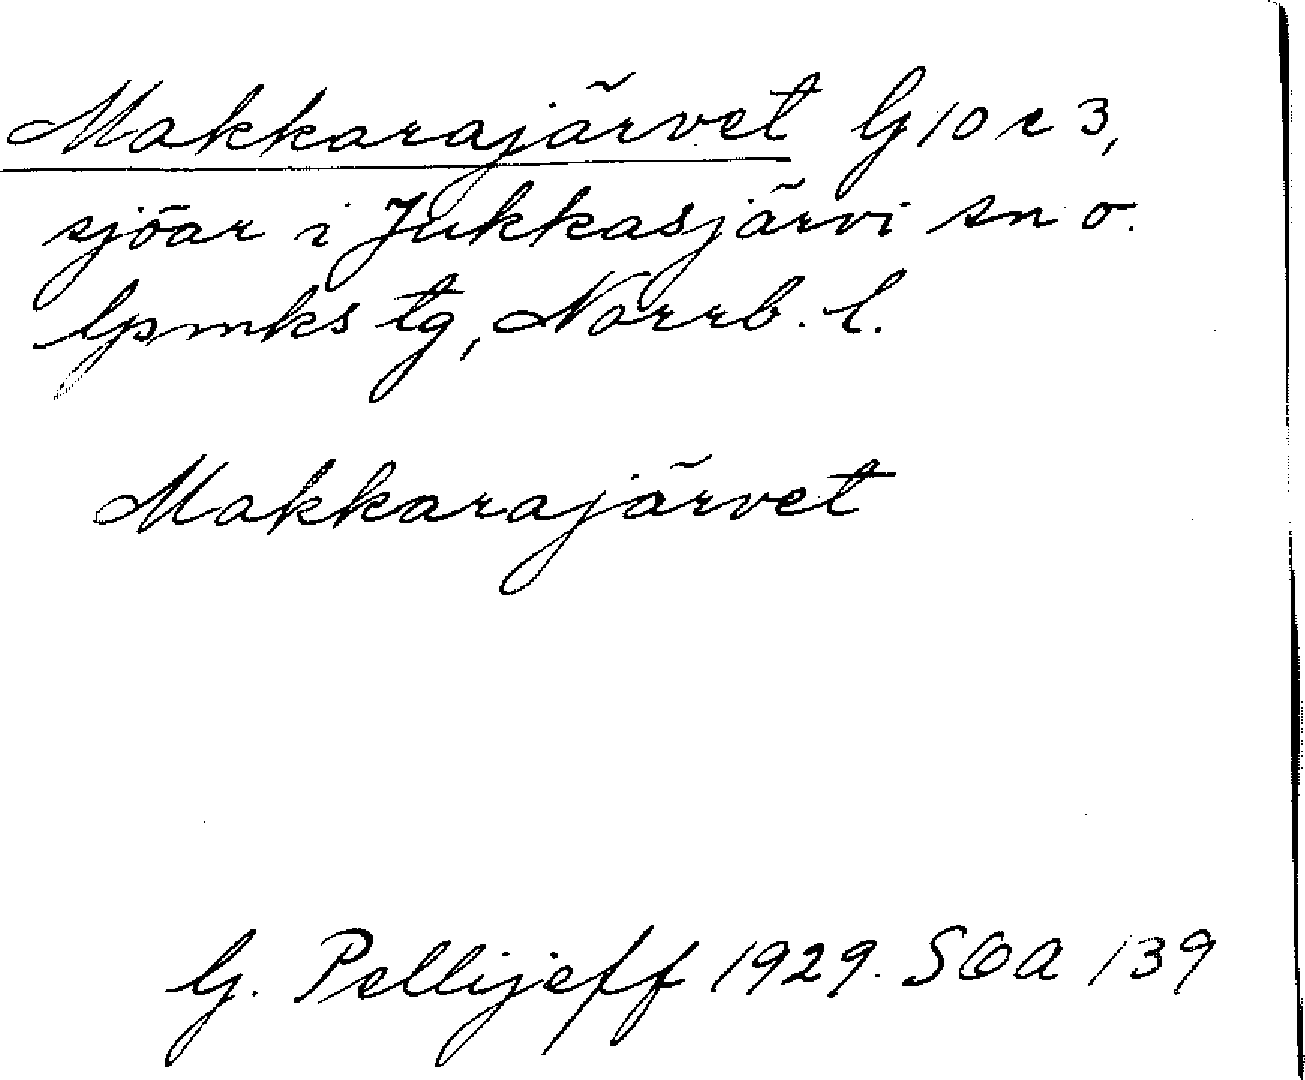 Makkarajärvet G10c3,
sjöar i Jukkasjärvi sn o.
lpmks tg, Norrb. l.
Makkarajärvet
G. Pellijeff 1929. SOA 139